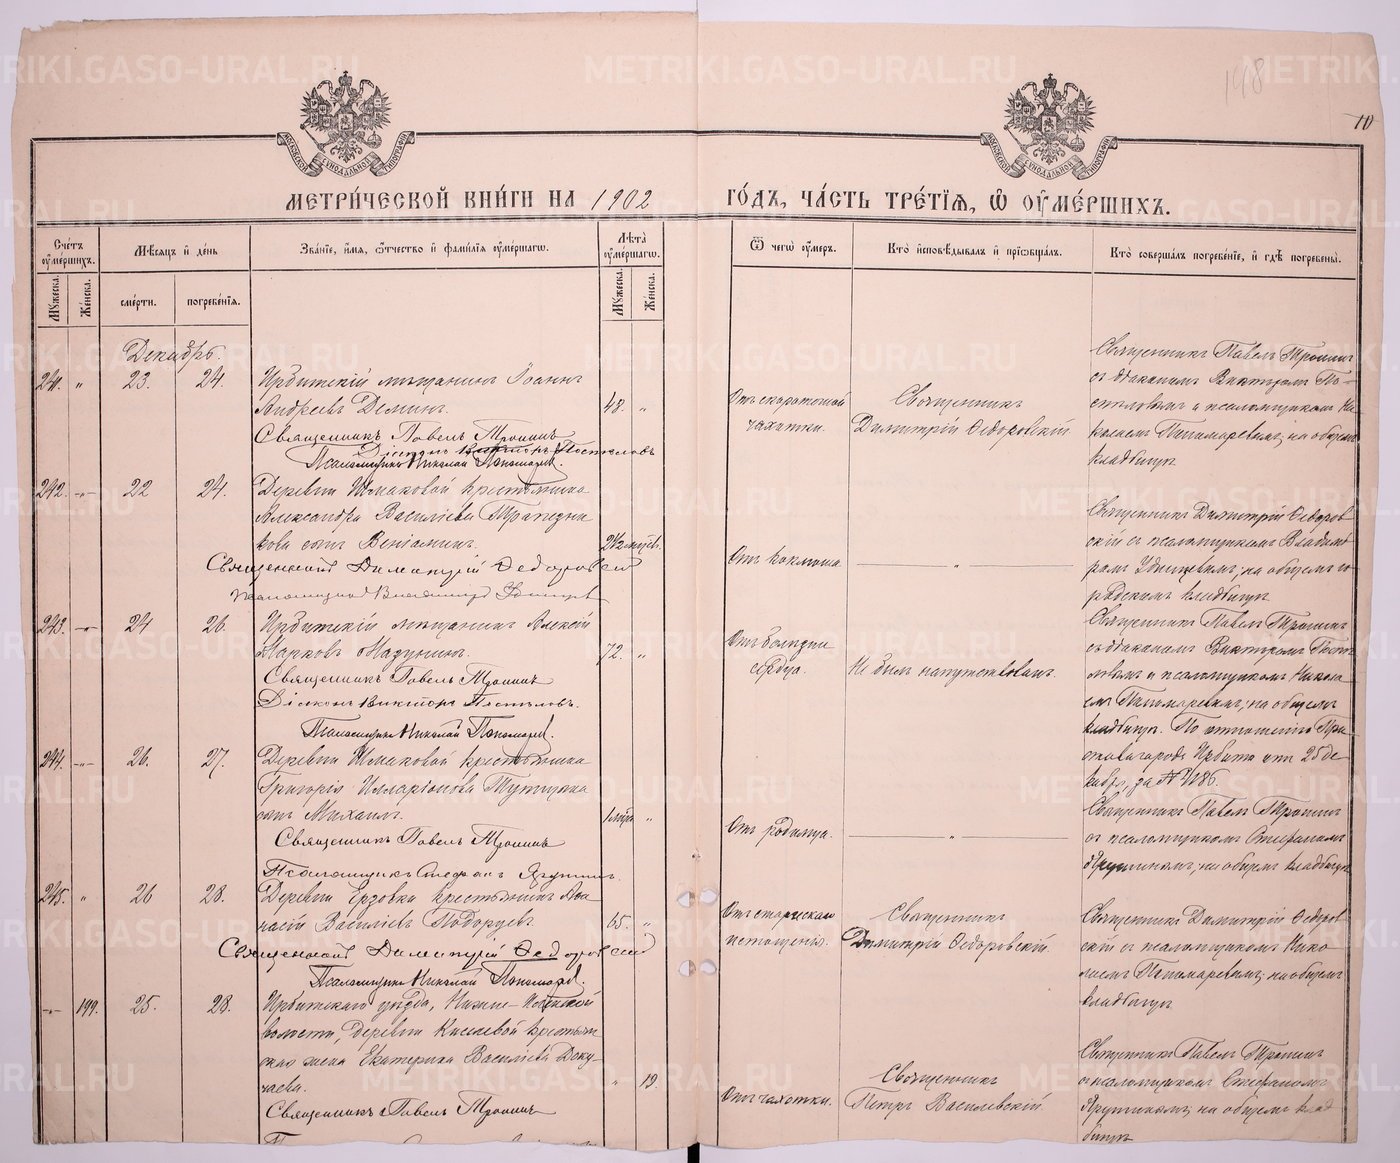 METRIKI.GASO-URAL.RU
148
10
МОСКОВСКОЙ СѴНОДАЛЬНОЙ ТИПОГРАФІИ
МОСКОВСКОЙ СѴНОДАЛЬНОЙ ТИПОГРАФІИ
МЕТРИ́ЧЕСКОЙ КНИ́ГИ НА 1902 ГО́ДЪ, ЧА́СТЬ ТРЕ́ТІЯ, Ѽ ОУМЕ́РШИХЪ.
Сче́тъ оуме́ршихъ.
Мꙋжеска.
Же́нска.
Мѣ́сяцъ и де́нь
сме́рти.
погребе́нія.
Зва́ніе, и́мя, ѻ́тчество и фами́лія оуме́ршагѡ.
Лѣ́та оуме́ршагѡ.
Мꙋжеска.
Же́нска.
Ѿ чегѡ̀ оу́меръ.
Кто̀ и҆сповѣ́дывалъ и прїѡбща́лъ.
Кто̀ соверша́лъ погребе́ніе, и гдѣ̀ погребены̀.
Декабрь.
241. " 23. 24.
Ирбитскій мѣщанинъ Іоаннъ
Андреевъ Деминъ.
48. "
Священникъ Павелъ Трошинъ
Діаконъ Викторъ Постыловъ
Псаломщикъ Николай Пономарев.
Отъ скоротечной
чахотки.
Священникъ
Димитрій Ѳедоровскій
Священникъ Павелъ Трошинъ
съ діакономъ Викторомъ По-
стыловымъ и псаломщикомъ Ни
колаемъ Пономаревымъ; на общемъ
кладбищѣ
242. -"- 22 24.
Деревни Шмаковой крестьянина
Александра Василіева Трапезни
кова сынъ Веніаминъ.
2½ мѣсяц.
Священникъ Димитрій Ѳедоровскій
Псаломщикъ Владимиръ
Отъ коклюша
"
Священникъ Димитрій Ѳедоров
скій съ псаломщикомъ Владими
ромъ на общемъ го
родскомъ кладбищѣ
243. -"- 24 26.
Ирбитскій мѣщанинъ Алексій
Марковъ Мазунинъ.
72. "
Священникъ Павелъ Трошинъ
Діаконъ Викторъ Постыловъ.
Псаломщикъ Николай Пономарев.
Отъ болѣзни
сердца.
Не былъ напутствованъ.
Священникъ Павелъ Трошинъ
съ діакономъ Викторомъ Посты
ловымъ и псаломщикомъ Никола
емъ Пономаревымъ; на общемъ
кладбищѣ. По отношенію При
става города Ирбита отъ 25 де
кабря, за №
244. -"- 26. 27.
Деревни Шмаковой крестьянина
Григорія Илларіонова
сынъ Михаилъ.
Священникъ Павелъ Трошинъ
Псаломщикъ Стефанъ Ярушинъ.
Отъ родимца.
"
Священникъ Павелъ Трошинъ
съ псаломщикомъ Стефаномъ
Ярушинымъ; на общемъ кладбищѣ
245. " 26 28.
Деревни Ерзовки крестьянинъ Аѳа
насій Василіевъ Подоруевъ
65. "
Священникъ Димитрій Ѳедоровскій
Псаломщикъ Николай Пономарев.
Отъ старческаго
истощенія.
Священникъ
Димитрій Ѳедоровскій.
Священникъ Димитрій Ѳедоров
скій съ псаломщикомъ Нико
лаемъ Пономаревымъ; на общемъ
кладбищѣ
-"- 199. 25. 28.
Ирбитскаго уѣзда, Нижне-
волости, деревни Киселевой крестьян
ская жена Екатерина Василіева Доку
чаева.
" 19.
Священникъ Павелъ Трошинъ
Отъ чахотки.
Священникъ
Петръ Василевскій.
Священникъ Павелъ Трошинъ
съ псаломщикомъ Стефаномъ
Ярушинымъ; на общемъ клад
бищѣ